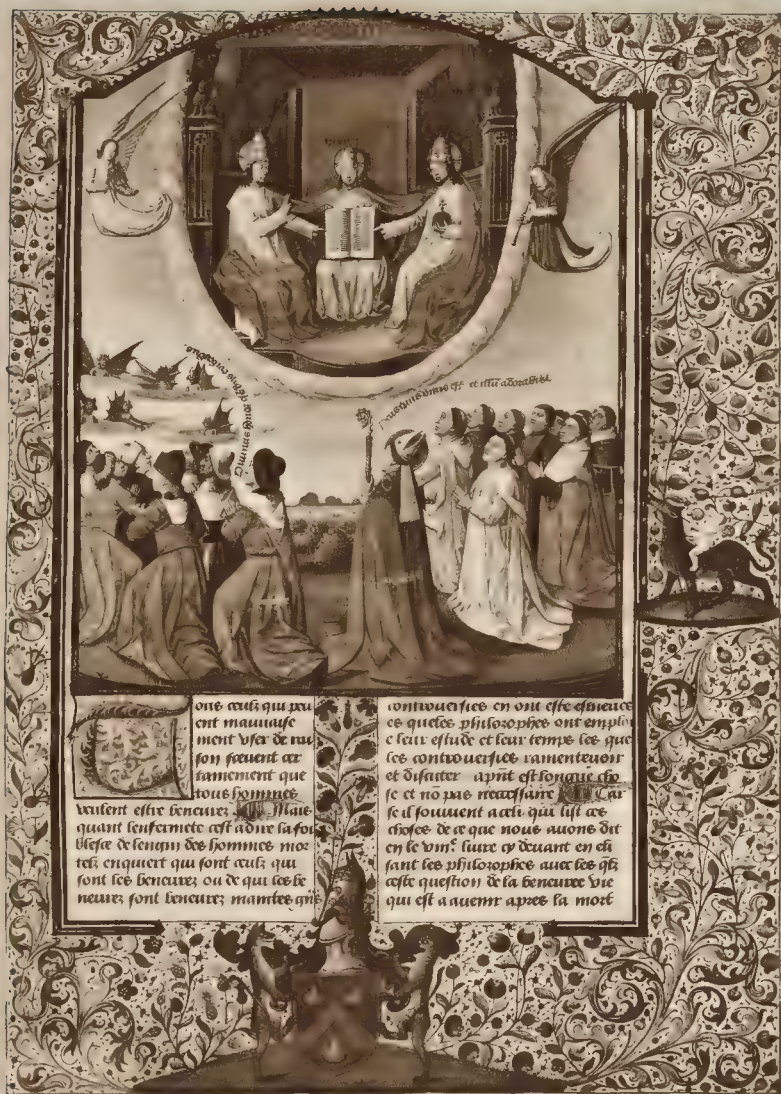 Deus quis unus est et illum adorabis
ons ceulz qui peu
ent mauuaise
ment vser de rai
son sceuent cer
tainement que
tous hommes
veulent estre beneurez Mais
quant lenfermete cest adire la foi
blesce de lengin des hommes mor
telz enquiert qui sont ceulz qui
sont les beneurez ou de qui les be
neurez sont beneurez maintes gns
controuersies en ont este esmeues
es queles philozophes ont emploie
leur estude et leur temps les que
les controuersies ramenteuoir
et disputer aprñt est longue cho
se et nõ pas neccessaire Car
se il souuient a celi qui list ces
choses de ce que nous auons dit
en le viiiᵉ liure cy deuant en eli
sant les philozophes auec les qlz
ceste question de la beneuree vie
qui est a auenir apres la mort